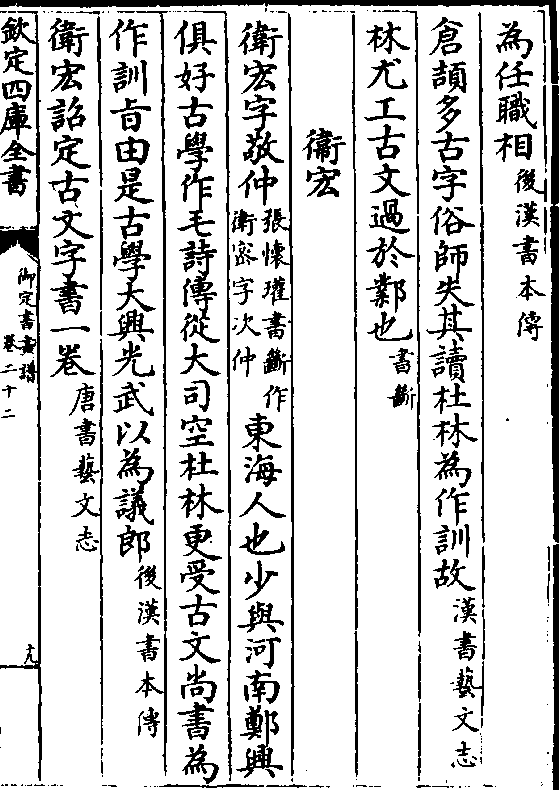 為任職相後漢書本傳
倉頡多古字俗師失其讀杜林為作訓故漢書藝文志
林尤工古文過於鄴也書斷
衛宏
衛宏字敬仲張懷瓘書斷作衛宻字次仲東海人也少與河南鄭興
俱好古學作毛詩傳從大司空杜林更受古文尚書為
作訓㫖由是古學大興光武以為議郎後漢書本傳
衛宏詔定古文字書一卷唐書藝文志
欽定四庫全書
御定書畫譜
卷二十二
十九